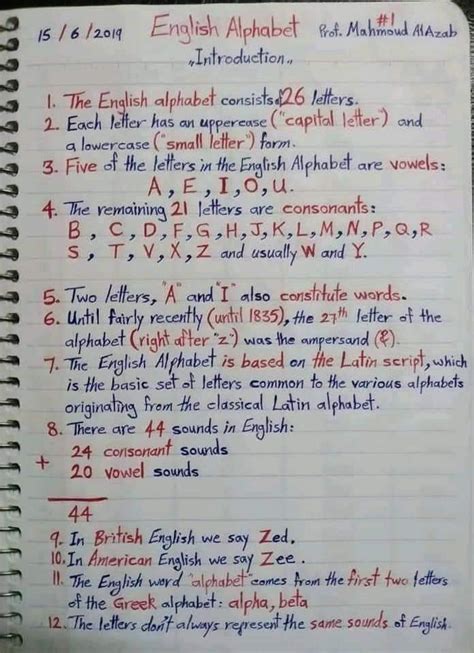 #1
15/6/2019 English Alphabet Prof. Mahmoud AlAzab
"Introduction"
1. The English alphabet consists of 26 letters.
2. Each letter has an uppercase ("capital letter") and
a lowercase ("small letter") form.
3. Five of the letters in the English Alphabet are vowels:
A, E, I, O, U.
4. The remaining 21 letters are consonants:
B, C, D, F, G, H, J, K, L, M, N, P, Q, R
S, T, V, X, Z and usually W and Y.
5. Two letters, "A" and "I" also constitute words.
6. Until fairly recently (until 1835), the 27th letter of the
alphabet (right after "z") was the ampersand (&).
7. The English Alphabet is based on the Latin script, which
is the basic set of letters common to the various alphabets
originating from the classical Latin alphabet.
8. There are 44 sounds in English:
24 consonant sounds
+ 20 vowel sounds
44
9. In British English we say Zed.
10. In American English we say Zee.
11. The English word "alphabet" comes from the first two letters
of the Greek alphabet: alpha, beta
12. The letters don't always represent the same sounds of English.